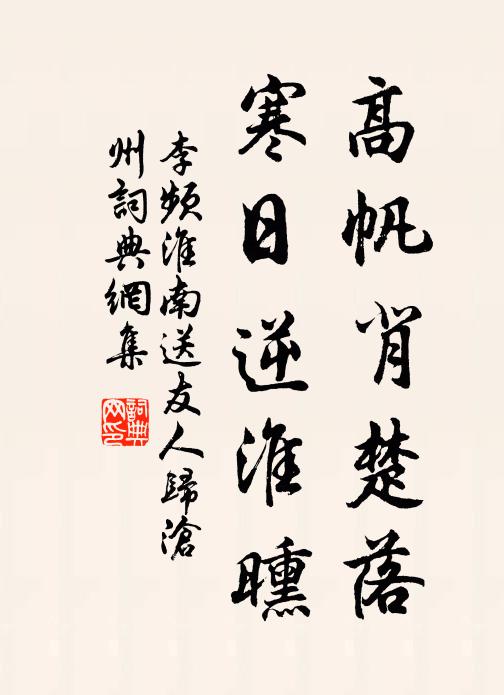 髙帆背楚落
寒日逆淮曛
李頻淮南送友人歸滄
州詞典網集
詞典
网印